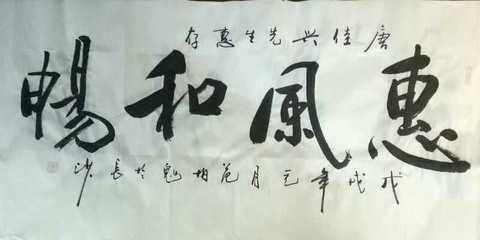 唐佳兴先生惠存
惠風和暢
戊戌年元月於長沙